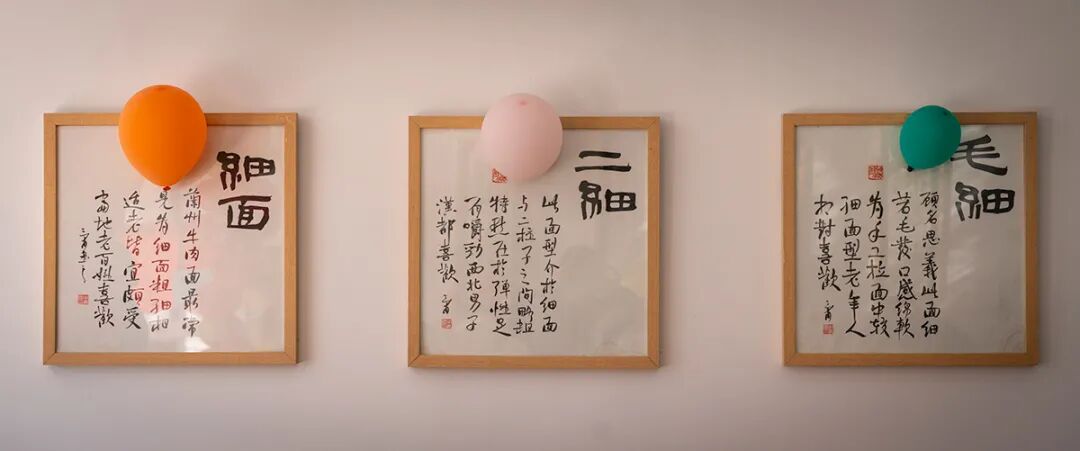 細面
蘭州牛肉面最常
見為細面粗細相
适老皆宜頗受
當地老百姓喜歡
二細
此面型介於細面
与二柱子之间略粗
特點在於彈性足
有嚼勁西北男子
漢都喜歡
毛細
顧名思義此面細
若毛髮口感綿軟
為手工拉面中較
細面型老年人
相對喜歡